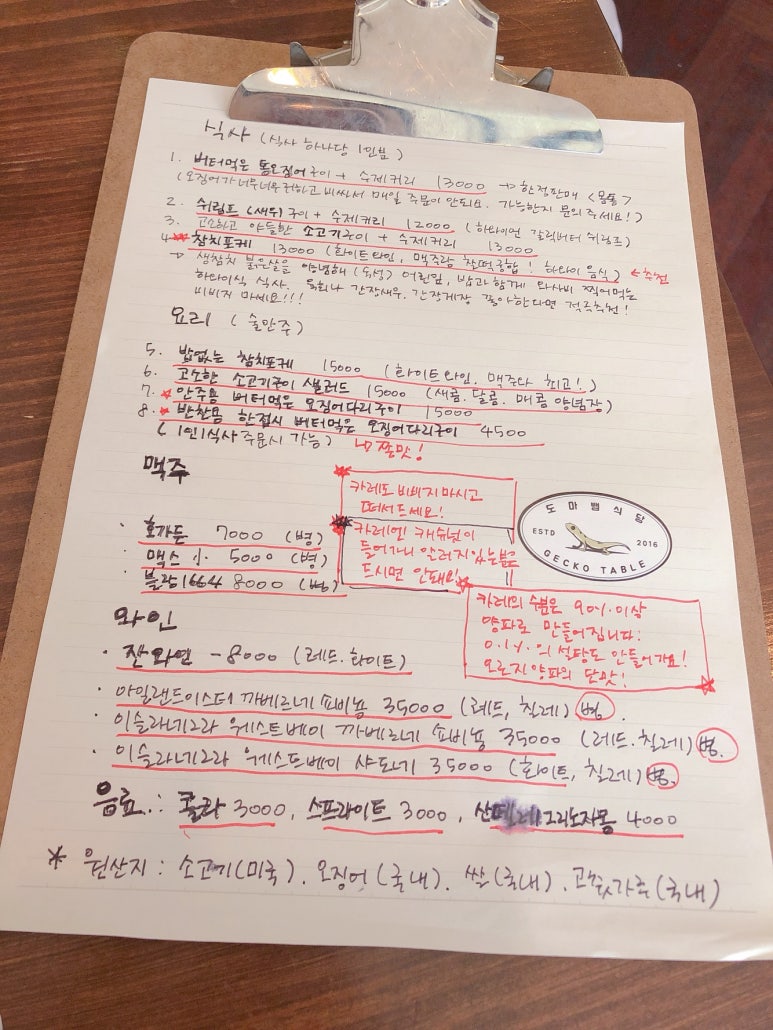 식사 (식사 하나당 1인분)
1. 버터먹은 통오징어구이 + 수제커리 13000 → 한정판매 <몸통>
(오징어가 너무너무 귀하고 비싸서 매일 주문이 안되요. 가능한지 문의 주세요!)
2. 쉬림프 (새우)구이 + 수제커리 12000 (하와이언 갈릭버터 쉬림프)
3. 고소하고 야들한 소고기구이 + 수제커리 13000
4. ★ 참치포케 13000 (화이트와인, 맥주랑 찰떡궁합! 하와이 음식) ← 추천
→ 생참치 붉은살을 양념해 (숙성) 어린잎, 밥과 함께 와사비 찍어먹는
하와이식 식사. 육회나 간장새우, 간장게장 좋아한다면 적극추천!
비비지 마세요!!!
요리 (술안주)
5. 밥없는 참치포케 15000 (화이트와인. 맥주와 최고!)
6. 고소한 소고기구이 샐러드 15000 (새콤. 달콤. 매콤 양념장)
7. ★ 안주용 버터먹은 오징어다리구이 15000
8. ★ 반찬용 한접시 버터먹은 오징어다리구이 4500
(1인1식사 주문시 가능) ↳ 쫀맛!
맥주
· 호가든 7000 (병)
· 맥스 小 5000 (병)
· 블랑1664 8000 (병)
카레도 비비지 마시고
떠서드세요!
카레엔 캐슈넛이
들어가니 알러지있는분은
드시면 안돼요!!
도마뱀식당
ESTD 2016
GECKO TABLE
카레의 수분은 90% 이상
양파로 만들어집니다.
0.1%의 설탕도 안들어가요!
오로지 양파의 단맛!
와인
· 잔와인 - 8000 (레드. 화이트)
· 아일랜드미스터 까베르네 쇼비뇽 35000 (레드, 칠레) 병.
· 이슬라네그라 웨스트베이 까베르네 쇼비뇽 35000 (레드. 칠레) 병.
· 이슬라네그라 웨스트베이 샤도네 35000 (화이트, 칠레) 병.
음료.: 콜라 3000, 스프라이트 3000, 산펠레그리노자몽 4000
* 원산지 : 소고기(미국). 오징어(국내). 쌀(국내). 고춧가루(국내)